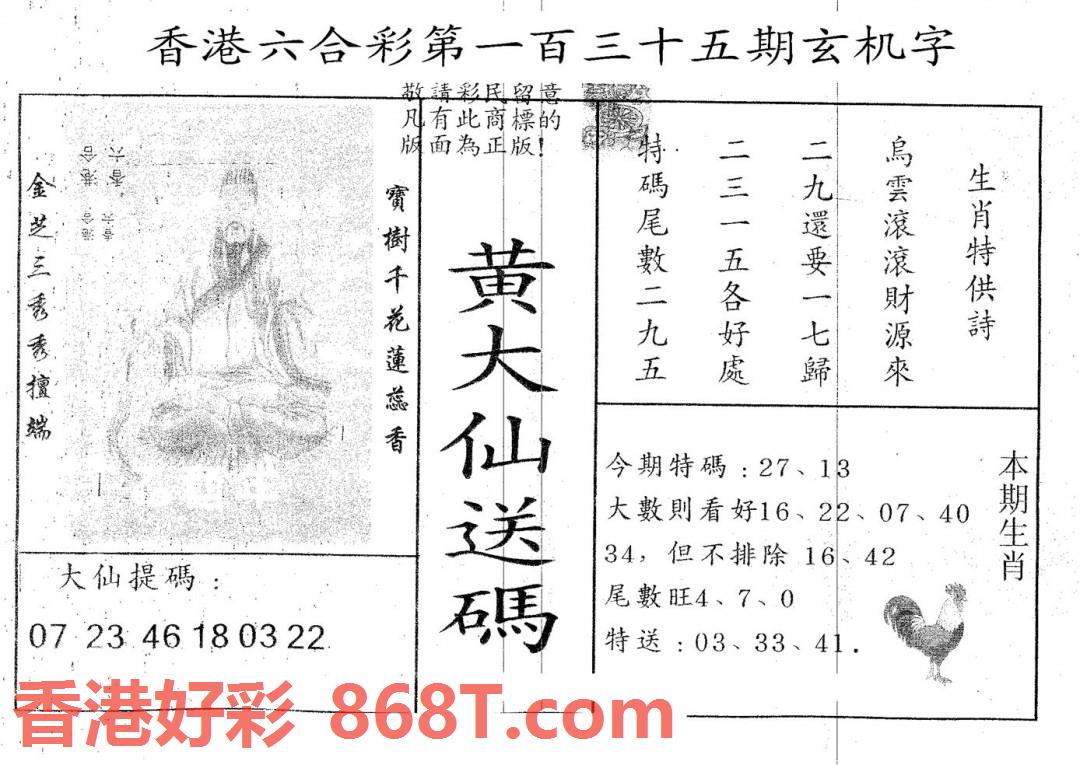 香港六合彩第一百三十五期玄机字
敬請彩民留意
凡有此商標的
版面為正版!
金芝三秀秀擅端
寶樹千花蓮蕊香
黄大仙送碼
生肖特供詩
烏雲滾滾財源來
二九還要一七歸
二三一五各好處
特碼尾數二九五
大仙提碼:
07 23 46 18 03 22
本期生肖
今期特碼:27、13
大數則看好16、22、07、40
34,但不排除 16、42
尾數旺4、7、0
特送:03、33、41.
香港好彩 868T.com